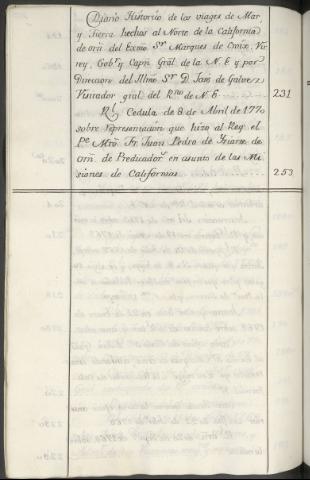 Diario Historico de los viages de Mar,
y Tierra hechos al Norte de la California
de orñ del Exmo Sor Marques de Croix, Vir
rey, Gobor y Capn Gral de la N. E. y por
Direccion del Illmo Sor D. José de Galvez
Visitador gral del Rno de N. E. 231
Rl Cedula de 8 de Abril de 1770
sobre representacion que hizo al Rey el
Pe Mtro Fr. Juan Pedro de Yriarte de
orñ de Predicadors en asunto de las Mi
siones de Californias 253